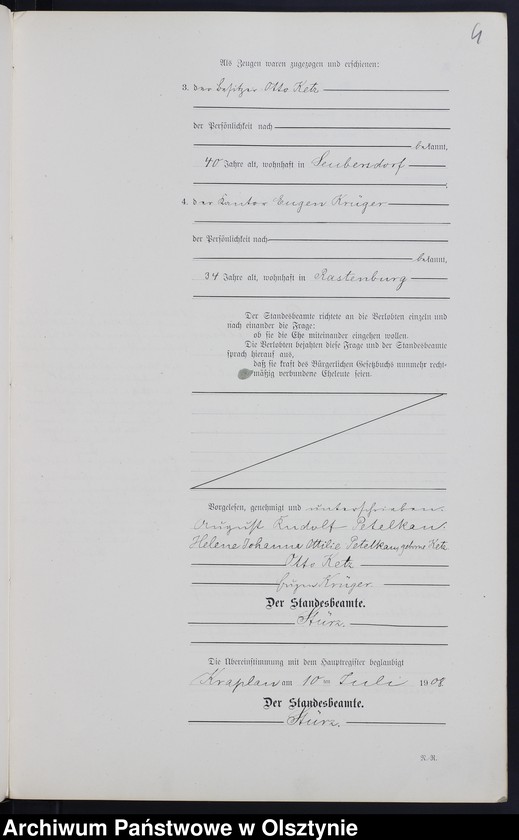 4
Als Zeugen waren zugezogen und erschienen:
3. der Besitzer Otto Ketz
der Persönlichkeit nach
bekannt,
40 Jahre alt, wohnhaft in Seubersdorf
4. der Kantor Eugen Krüger
der Persönlichkeit nach
bekannt,
34 Jahre alt, wohnhaft in Rastenburg
Der Standesbeamte richtete an die Verlobten einzeln und
nach einander die Frage:
ob sie die Ehe miteinander eingehen wollen.
Die Verlobten bejahten diese Frage und der Standesbeamte
sprach hierauf aus,
daß sie kraft des Bürgerlichen Gesetzbuchs nunmehr recht-
mäßig verbundene Eheleute seien.
Vorgelesen, genehmigt und unterschrieben.
August Rudolf Petelkau.
Helene Johanna Ottilie Petelkau, geborne Ketz
Otto Ketz
Eugen Krüger.
Der Standesbeamte.
Stürz.
Die Übereinstimmung mit dem Hauptregister beglaubigt
Kraplau am 10 ten Juli 1908
Der Standesbeamte.
Stürz.
N.-R.
Archiwum Państwowe w Olsztynie